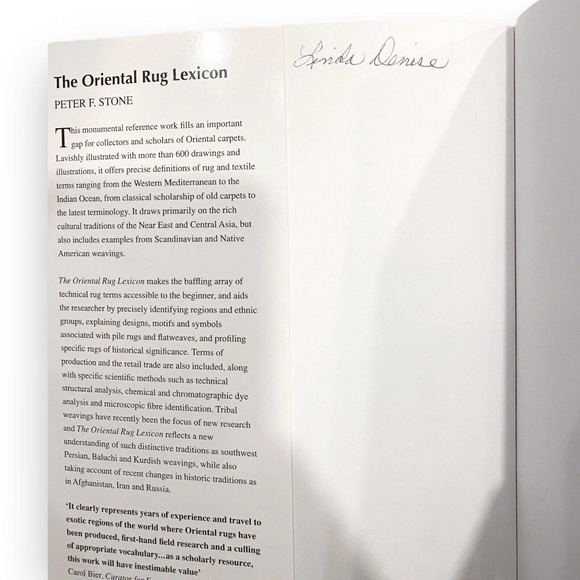 The Oriental Rug Lexicon
PETER F. STONE
This monumental reference work fills an important
gap for collectors and scholars of Oriental carpets.
Lavishly illustrated with more than 600 drawings and
illustrations, it offers precise definitions of rug and textile
terms ranging from the Western Mediterranean to the
Indian Ocean, from classical scholarship of old carpets to
the latest terminology. It draws primarily on the rich
cultural traditions of the Near East and Central Asia, but
also includes examples from Scandinavian and Native
American weavings.
The Oriental Rug Lexicon makes the baffling array of
technical rug terms accessible to the beginner, and aids
the researcher by precisely identifying regions and ethnic
groups, explaining designs, motifs and symbols
associated with pile rugs and flatweaves, and profiling
specific rugs of historical significance. Terms of
production and the retail trade are also included, along
with specific scientific methods such as technical
structural analysis, chemical and chromatographic dye
analysis and microscopic fibre identification. Tribal
weavings have recently been the focus of new research
and The Oriental Rug Lexicon reflects a new
understanding of such distinctive traditions as southwest
Persian, Baluchi and Kurdish weavings, while also
taking account of recent changes in historic traditions as
in Afghanistan, Iran and Russia.
'It clearly represents years of experience and travel to
exotic regions of the world where Oriental rugs have
been produced, first-hand field research and a culling
of appropriate vocabulary...as a scholarly resource,
this work will have inestimable value'
Carol Bier, Curator for
Linda Denise